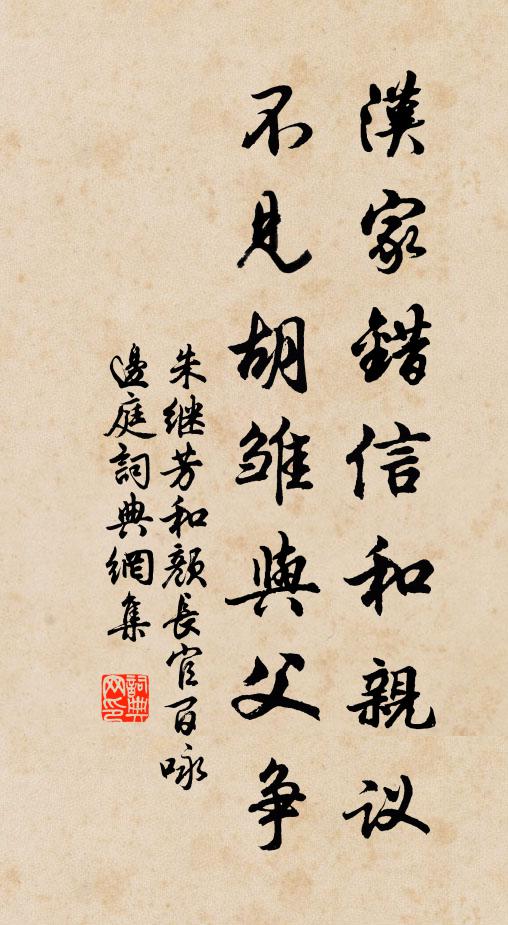 漢家錯信和親议
不見胡雏與父爭
朱继芳和顏長官百咏
邊庭詞典網集
詞典网印